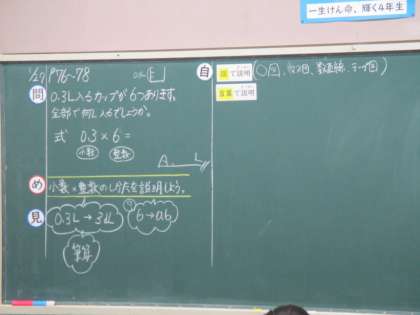 一生けん命、輝く4年生
1/27 P76~78
問
0.3L入るカップが6つあります。
全部で何L入るでしょうか。
式 0.3×6=
小数 整数
A. L
め
小数×整数のし方を説明しよう。
見
0.3L→3dL
6→0.6
筆算
自
図で説明
言葉で説明
数直線、テープ図)